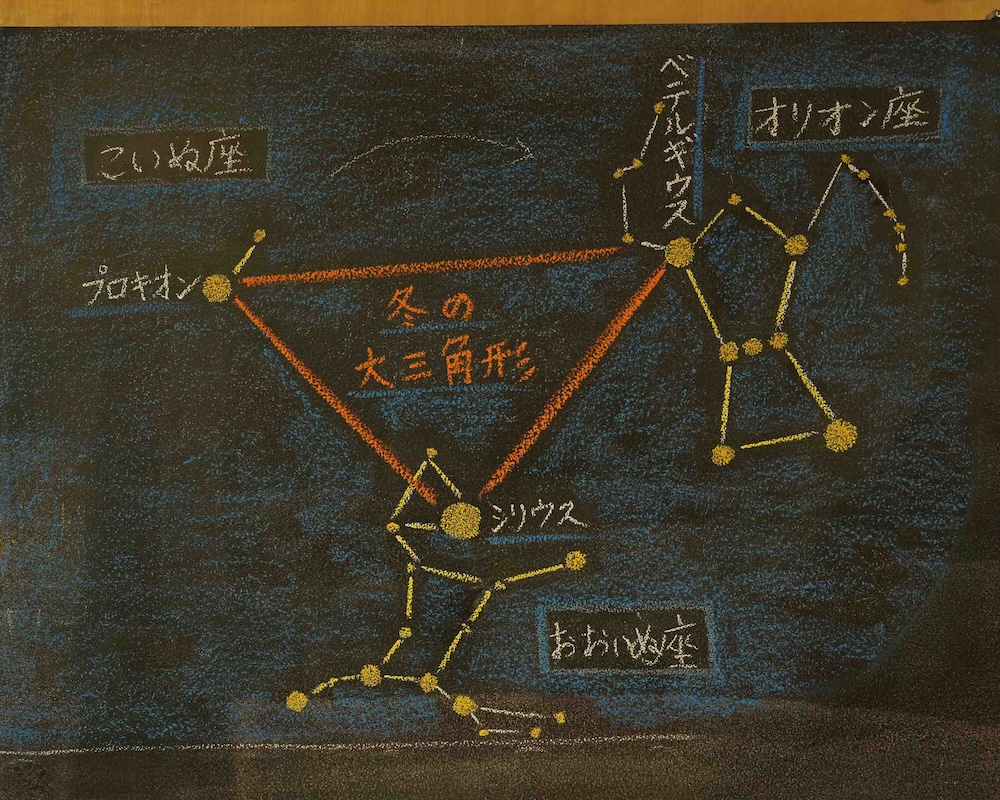 こいぬ座
ベテルギウス
オリオン座
プロキオン
冬の
大三角形
シリウス
おおいぬ座